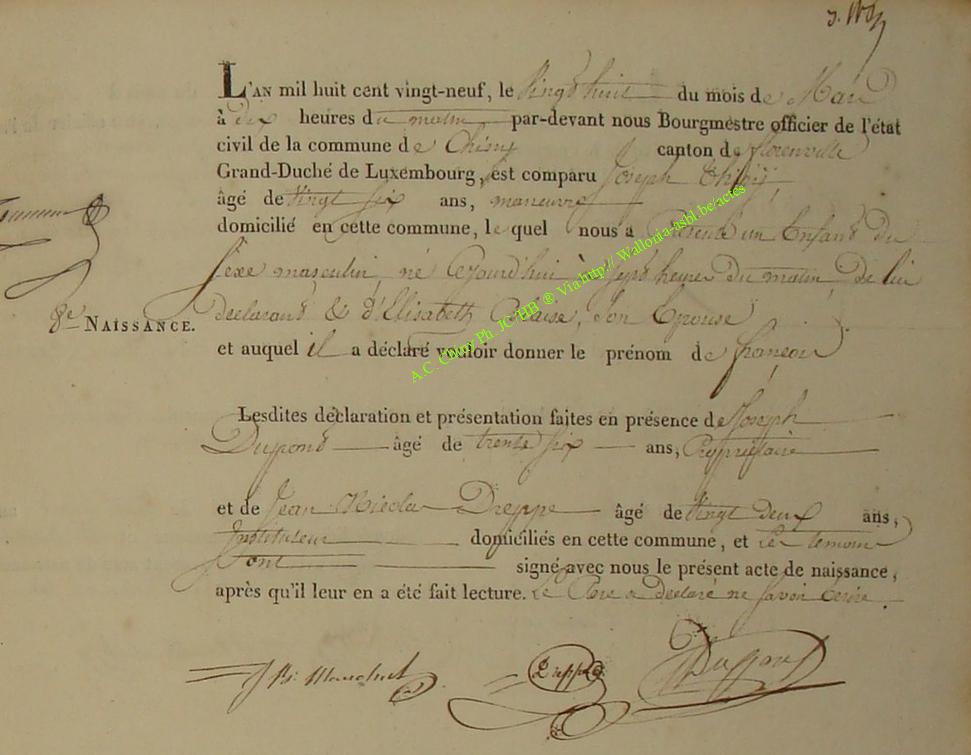 L'AN mil huit cent vingt-neuf, le Vingt huit du mois de Mars
à dix heures du matin par-devant nous Bourgmestre officier de l'état
civil de la commune de Chiny canton de florenville
Grand-Duché de Luxembourg, est comparu Joseph
âgé de vingt six ans, manœuvre
domicilié en cette commune, lequel nous a Présenté un Enfant du
sexe masculin, né cejourd'hui à sept heures du matin, de lui
déclarant & d'Elisabeth Blaise, son Epouse
8e NAISSANCE.
et auquel il a déclaré vouloir donner le prénom de françois
Lesdites déclaration et présentation faites en présence de Joseph
Dupont âgé de trente six ans, Propriétaire
et de Jean Nicolas Dreppe âgé de vingt deux ans,
Instituteur domiciliés en cette commune, et Les temoins
sont signé avec nous le présent acte de naissance,
après qu'il leur en a été fait lecture. Le Père a déclaré ne savoir Ecrire.
Dreppe Dupont
A.C. Chiny Ph. JC-HB ® Via http://Wallonia-asbl.be/actes